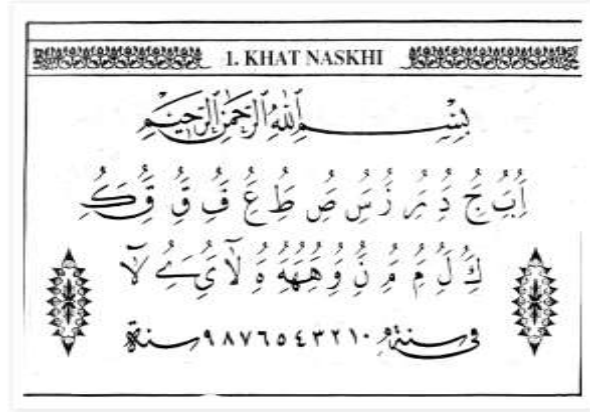 1. KHAT NASKHI
بِسْمِ اللهِ الرَّحْمٰنِ الرَّحِيْمِ
اَبُ جُ دُ رُ زُ سُ صُ طُ عُ فُ قُ قُ كُ
كُ لُ مُ مُ نُ وُ هُهُهُ هُ لاٰ يُ ے لاٰ
في سنة ٩٨٧٦٥٤٣٢١٠ سنة